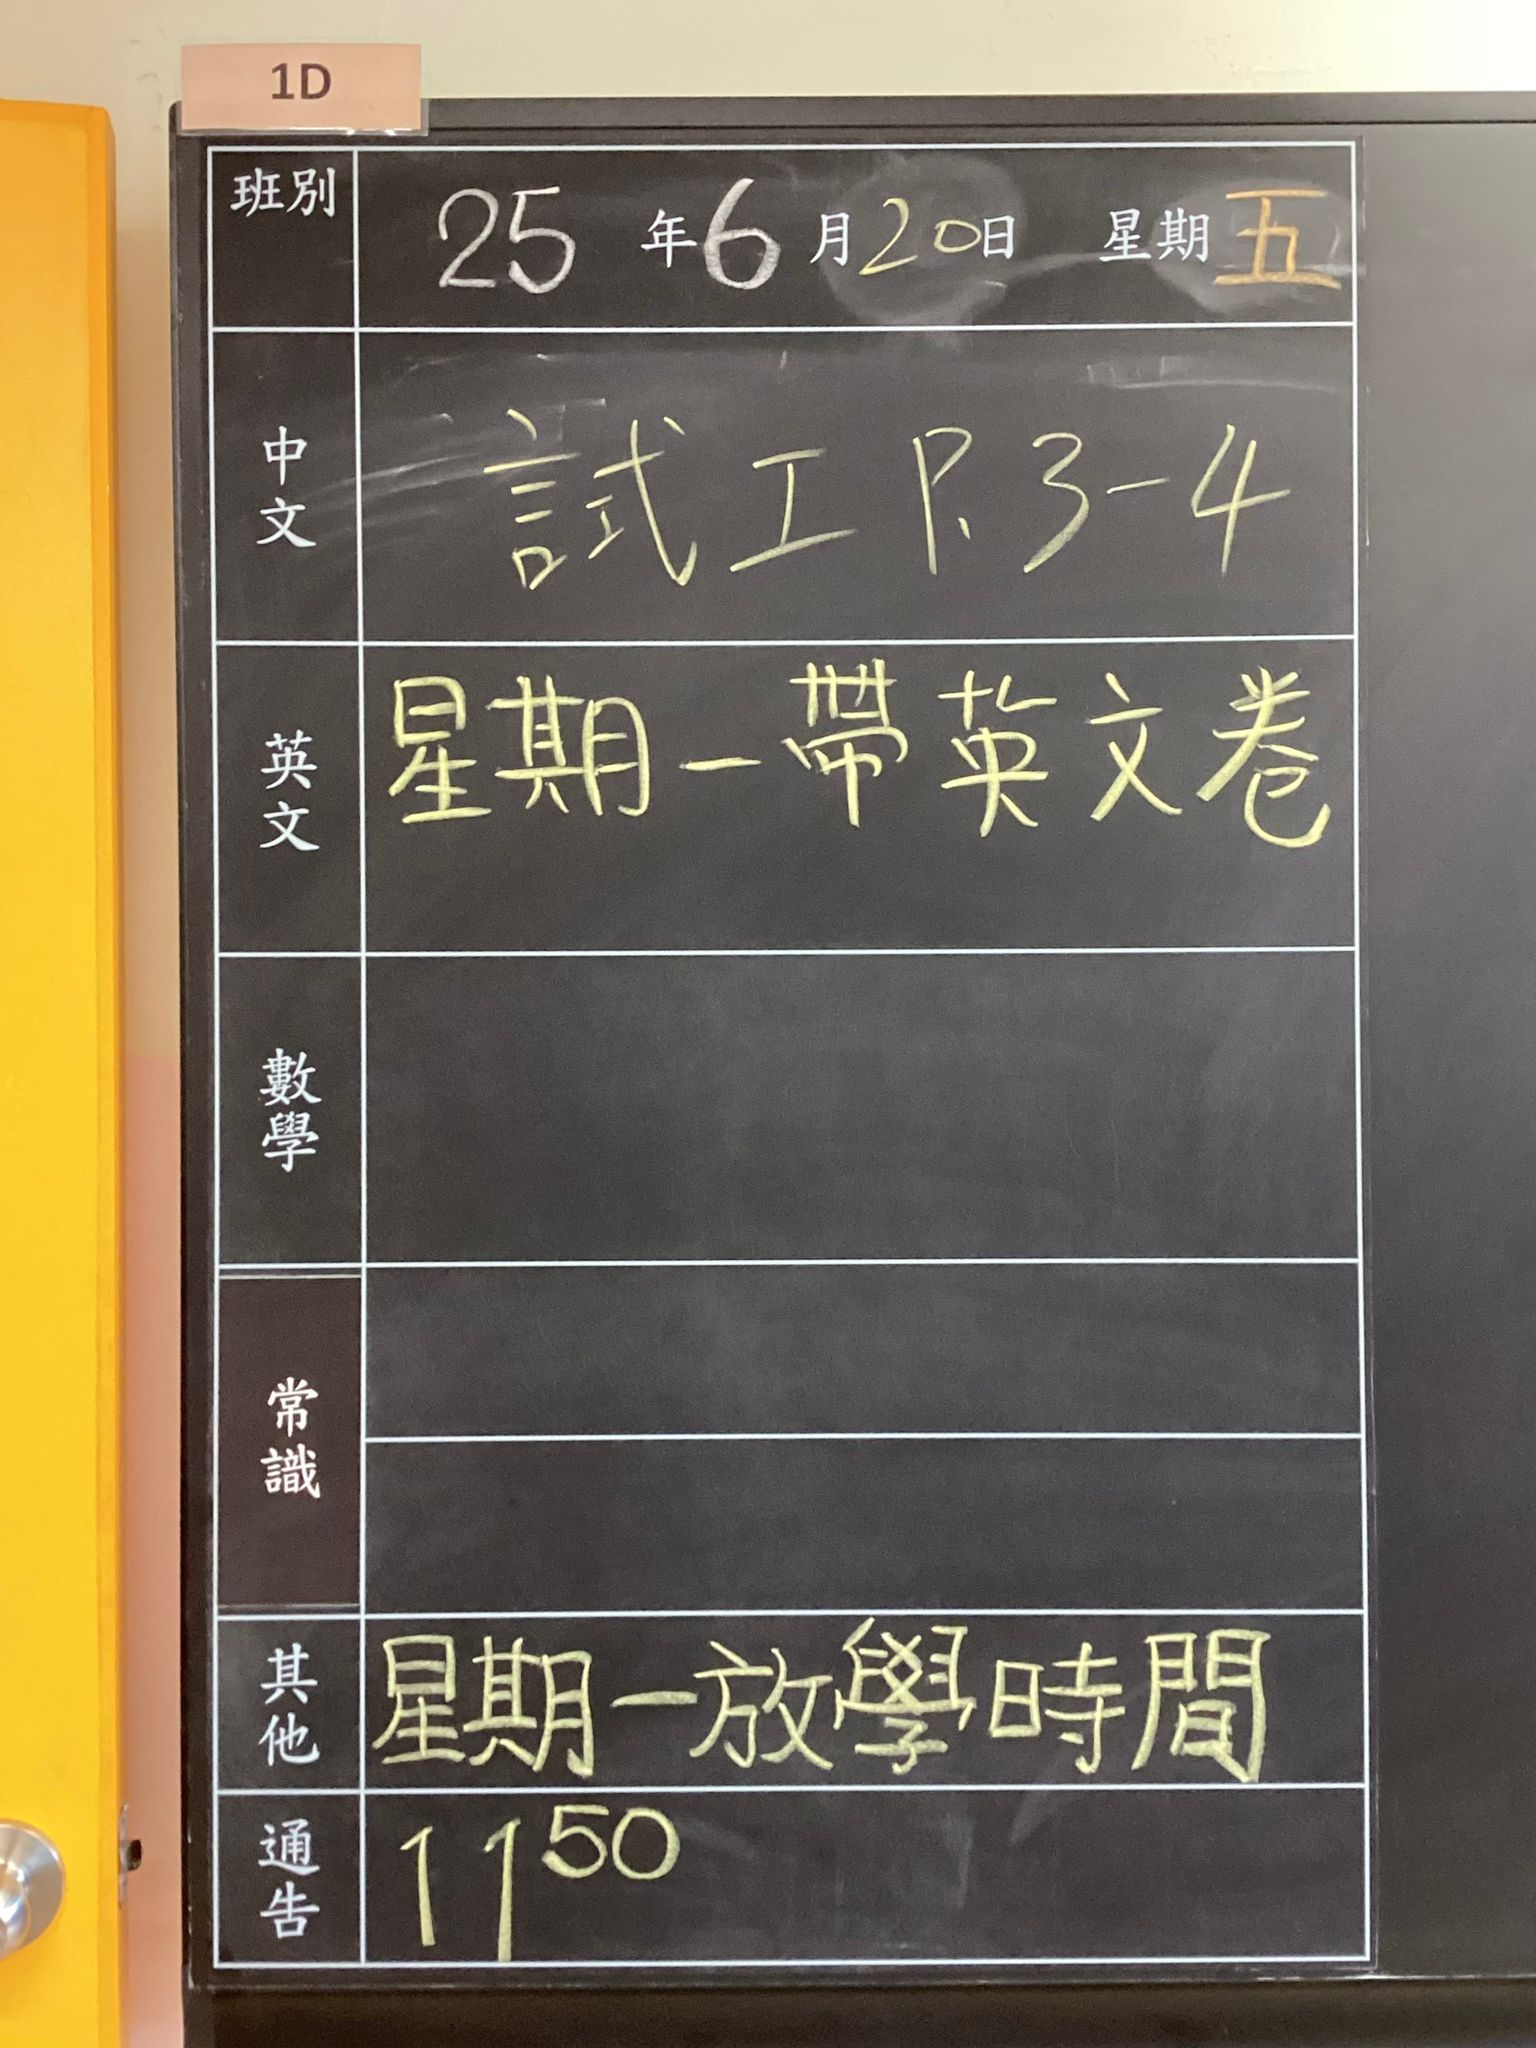 1D
班別 25年6月20日 星期五
中文 試工 P.3-4
英文 星期一帶英文卷
數學
常識
其他 星期一放學時間
通告 11 50